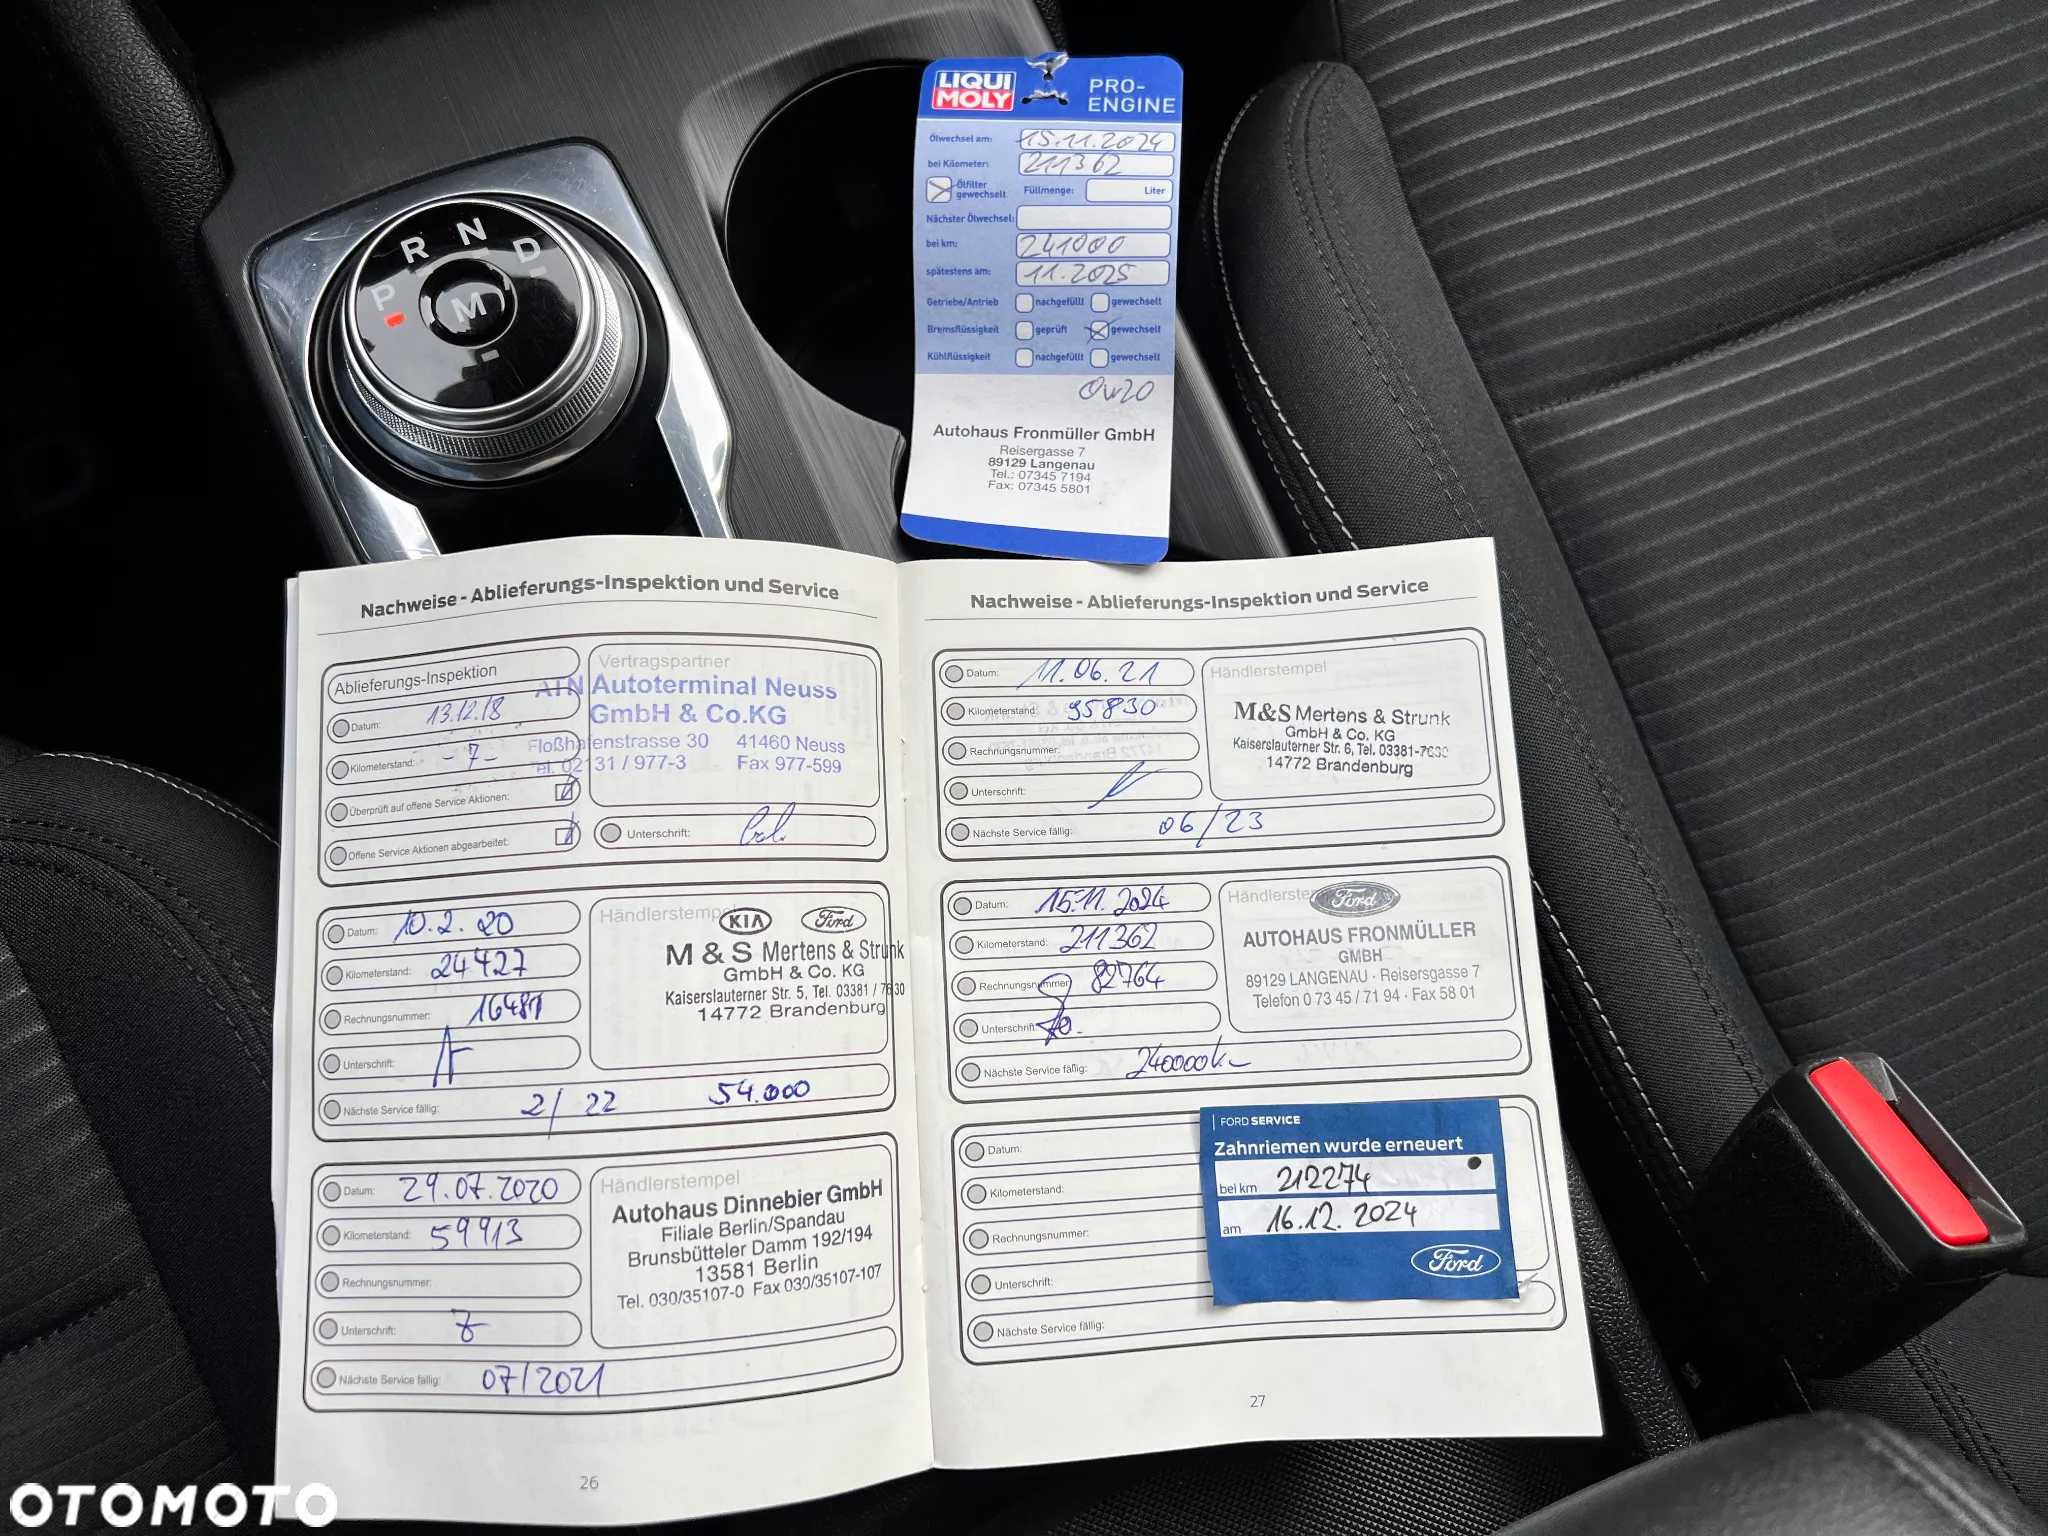 P R N D M
LIQUI MOLY
PRO-ENGINE
Ölwechsel am: 15.11.2024
bei Kilometer: 211362
Ölfilter gewechselt Füllmenge: Liter
Nächster Ölwechsel:
bei km: 241000
spätestens am: 11.2025
Getriebe/Antrieb nachgefüllt gewechselt
Bremsflüssigkeit geprüft gewechselt
Kühlflüssigkeit nachgefüllt gewechselt
0w20
Autohaus Fronmüller GmbH
Reisergasse 7
89129 Langenau
Tel.: 07345 7194
Fax: 07345 5801
Nachweise - Ablieferungs-Inspektion und Service
Ablieferungs-Inspektion
Datum: 13.12.18
Kilometerstand: -7-
Überprüft auf offene Service Aktionen:
Offene Service Aktionen abgearbeitet:
Vertragspartner
ATN Autoterminal Neuss
GmbH & Co.KG
Floßhafenstrasse 30 41460 Neuss
Tel. 02131 / 977-3 Fax 977-599
Unterschrift:
Datum: 10.2.20
Kilometerstand: 24427
Rechnungsnummer:
Unterschrift:
Nächste Service fällig: 2/22 54.000
Händlerstempel
KIA Ford
M & S Mertens & Strunk
GmbH & Co. KG
Kaiserslauterner Str. 5, Tel. 03381 / 7630
14772 Brandenburg
Datum: 29.07.2020
Kilometerstand: 59913
Rechnungsnummer:
Unterschrift:
Nächste Service fällig: 07/2021
Händlerstempel
Autohaus Dinnebier GmbH
Filiale Berlin/Spandau
Brunsbütteler Damm 192/194
13581 Berlin
Tel. 030/35107-0 Fax 030/35107-107
26
Nachweise - Ablieferungs-Inspektion und Service
Datum: 11.06.21
Kilometerstand: 95830
Rechnungsnummer:
Unterschrift:
Nächste Service fällig: 06/23
Händlerstempel
M&S Mertens & Strunk
GmbH & Co. KG
Kaiserslauterner Str. 6, Tel. 03381-7630
14772 Brandenburg
Datum: 15.11.2024
Kilometerstand: 211362
Rechnungsnummer: 82764
Unterschrift:
Nächste Service fällig: 240000km
Händlerstempel
Ford
AUTOHAUS FRONMÜLLER
GMBH
89129 LANGENAU · Reisersgasse 7
Telefon 0 73 45 / 71 94 · Fax 58 01
Datum:
Kilometerstand:
Rechnungsnummer:
Unterschrift:
Nächste Service fällig:
FORD SERVICE
Zahnriemen wurde erneuert
bei km 212274
am 16.12.2024
Ford
27
OTOMOTO